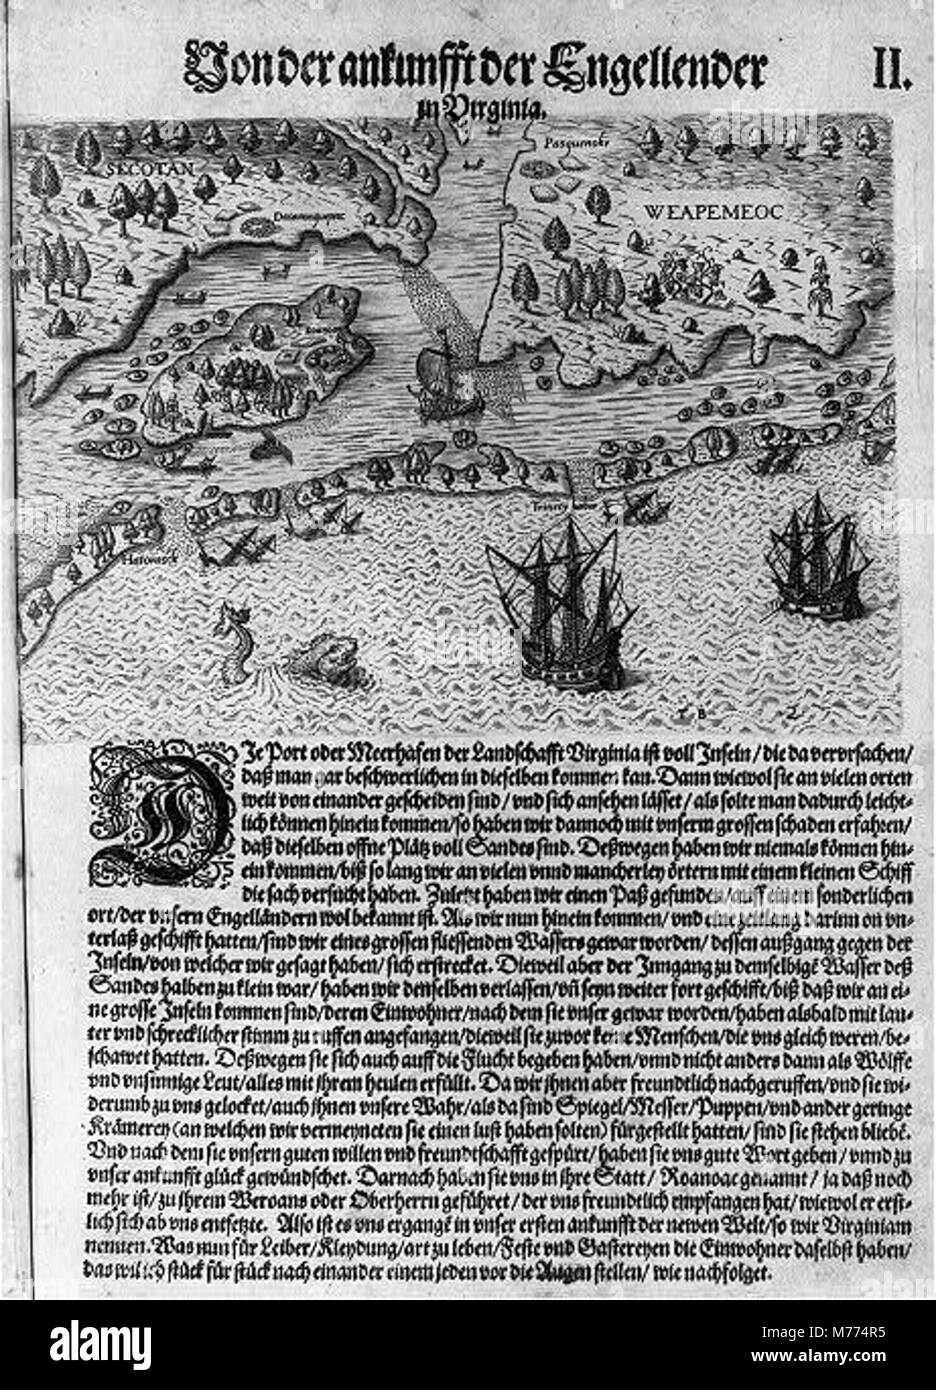 Von der ankunfft der Engellender II.
in Virginia.
Pasquenoke
SECOTAN
WEAPEMEOC
Roanoac
Trinety harbor
Hatorasck
T B
2
DJe Port oder Meerhafen der Landschafft Virginia ist voll Jnseln / die da vervrsachen /
daß man gar beschwerlichen in dieselben kommen kan. Dann wiewol sie an vielen orten
weit von einander gescheiden sind / vnd sich ansehen lässet / als solte man dadurch leicht-
lich können hinein kommen / so haben wir dannoch mit vnserm grossen schaden erfahren /
daß dieselben offne Plätz voll Sandes sind. Deßwegen haben wir niemals können hin-
ein kommen / biß so lang wir an vielen vnnd mancherley örtern mit einem kleinen Schiff
die sach versucht haben. Zuletzt haben wir einen Paß gefunden / auff einem sonderlichen
ort / der vnsern Engelländern wol bekannt ist. Als wir nun hinein kommen / vnd eine zeitlang darinn on vn-
terlaß geschifft hatten / sind wir eines grossen fliessenden Wassers gewar worden / dessen außgang gegen der
Jnseln / von welcher wir gesagt haben / sich erstrecket. Dieweil aber der Jnngang zu demselbigē Wasser deß
Sandes halben zu klein war / haben wir denselben verlassen / vñ seyn weiter fort geschifft / biß daß wir an ei-
ne grosse Jnseln kommen sind / deren Einwohner / nach dem sie vnser gewar worden / haben alsbald mit lau-
ter vnd schrecklicher stimm zu ruffen angefangen / dieweil sie zuvor keine Menschen / die vns gleich weren / be-
schawet hatten. Deßwegen sie sich auch auff die Flucht begeben haben / vnnd nicht anders dann als Wölffe
vnd vnsinnige Leut / alles mit jhrem heulen erfüllt. Da wir jhnen aber freundtlich nachgeruffen / vnd sie wi-
derumb zu vns gelocket / auch jhnen vnsere Wahr / als da sind Spiegel / Messer / Puppen / vnd ander geringe
Krämerey (an welchen wir vermeyneten sie einen lust haben solten) fürgestellt hatten / sind sie stehen bliebē.
Vnd nach dem sie vnsern guten willen vnd freundtschafft gespürt / haben sie vns gute Wort geben / vnnd zu
vnser ankunfft glück gewündschet. Darnach haben sie vns in jhre Statt / Roanoac genannt / ja daß noch
mehr ist / zu jhrem Weroans oder Oberherrn geführet / der vns freundtlich empfangen hat / wiewol er erst-
lich sich ab vns entsetzte. Also ist es vns ergangē in vnser ersten ankunfft der newen Welt / so wir Virginiam
nennen. Was nun für Leiber / Kleydung / art zu leben / Feste vnd Gastereyen die Einwohner daselbst haben /
das wil ich stück für stück nach einander einem jeden vor die Augen stellen / wie nachfolget.
alamy
Image ID: M774R5
www.alamy.com